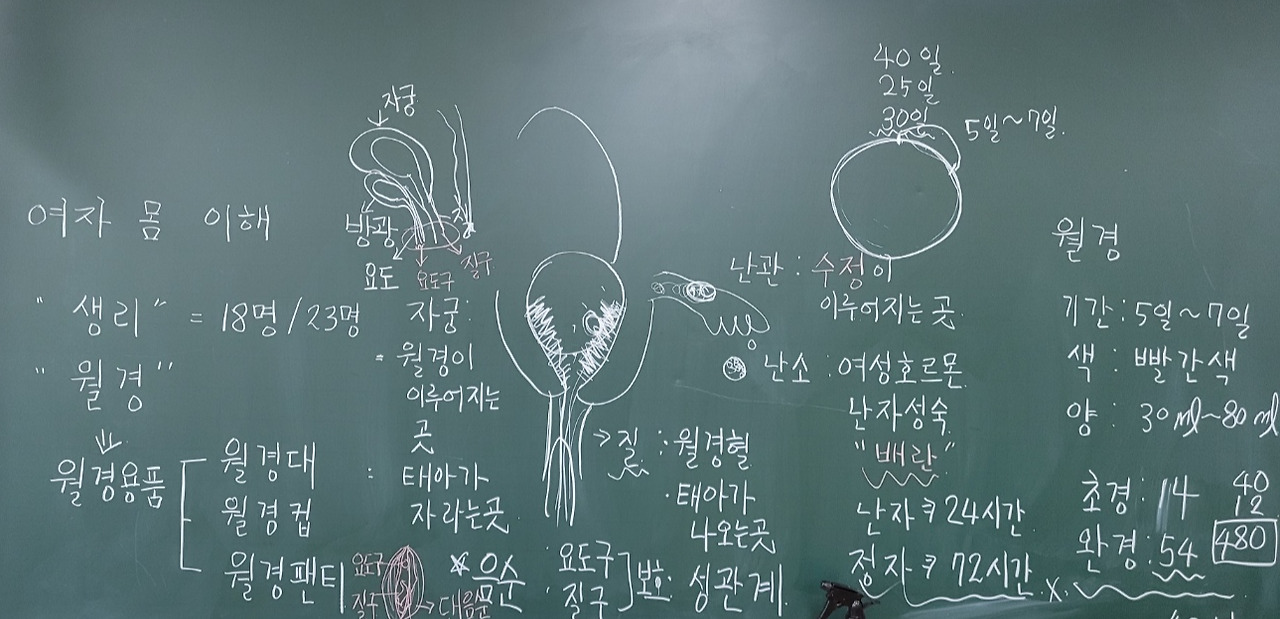 여자 몸 이해
"생리" = 18명/23명
"월경"
월경용품
월경대
월경컵
월경팬티
자궁
방광
질
요도
요도구
질구
자궁:
= 월경이
이루어지는
곳
= 태아가
자라는곳
요도구
질구
대음순
음순
요도구
질구
보호
성관계
질 : 월경혈
· 태아가
나오는곳
40일
25일
30일
5일~7일
난관 : 수정이
이루어지는 곳
난소 : 여성호르몬
난자성숙
"배란"
난자 24시간
정자 72시간
월경
기간 : 5일~7일
색 : 빨간색
양 : 30ml~80ml
초경 : 14
완경 : 54
40
12
480